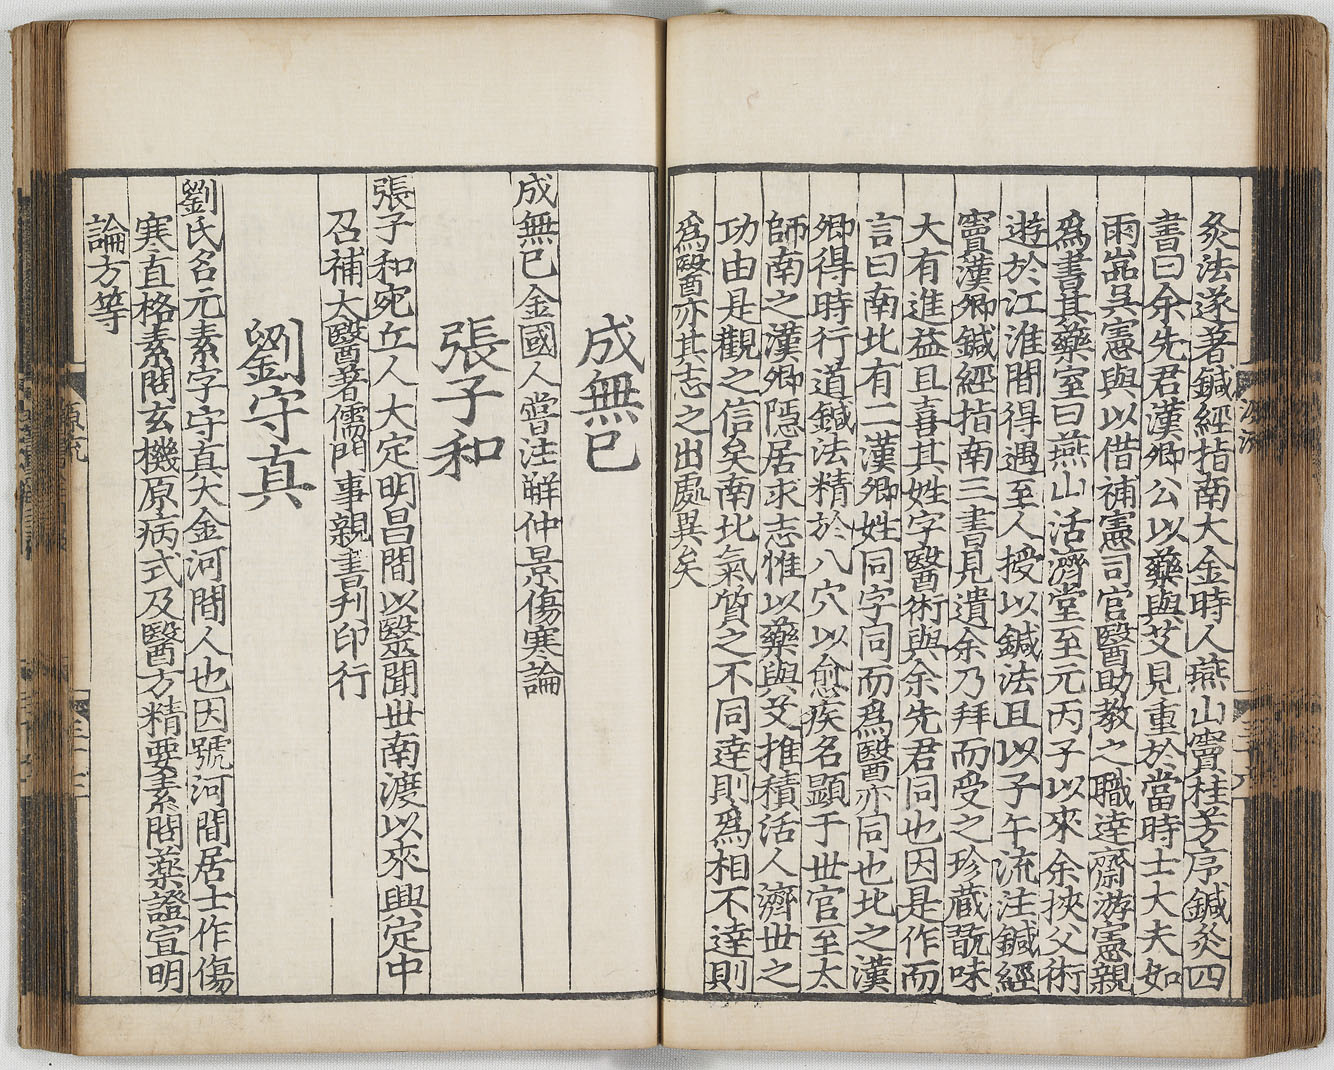 灸法遂著鍼經指南大金時人燕山竇桂芳序鍼灸四
書曰余先君漢卿公以藥與艾見重於當時士大夫如
雨嵓吳憲與以借補憲司官醫助教之職達齋游憲親
爲書其藥室曰燕山活濟堂至元丙子以來余挾父術
遊於江淮間得遇至人授以鍼法且以子午流注鍼經
竇漢卿鍼經指南三書見遺余乃拜而受之珍蔵翫味
大有進益且喜其姓字醫術與余先君同也因是作而
言曰南北有二漢卿姓同字同而爲醫亦同也北之漢
卿得時行道鍼法精於八穴以愈疾名顯于世官至太
師南之漢卿隱居求志惟以藥與艾推積活人濟世之
功由是觀之信矣南北氣質之不同達則爲相不達則
爲醫亦其志之出處異矣
成無已
成無已金國人嘗注解仲景傷寒論
張子和
張子和宛丘人大定明昌間以醫聞世南渡以來興定中
召補太醫著儒門事親書刋印行
劉守真
劉氏名元素字守真大金河間人也因號河間居士作傷
寒直格素問玄機原病式及醫方精要素問藥證宣明
論方等
源流